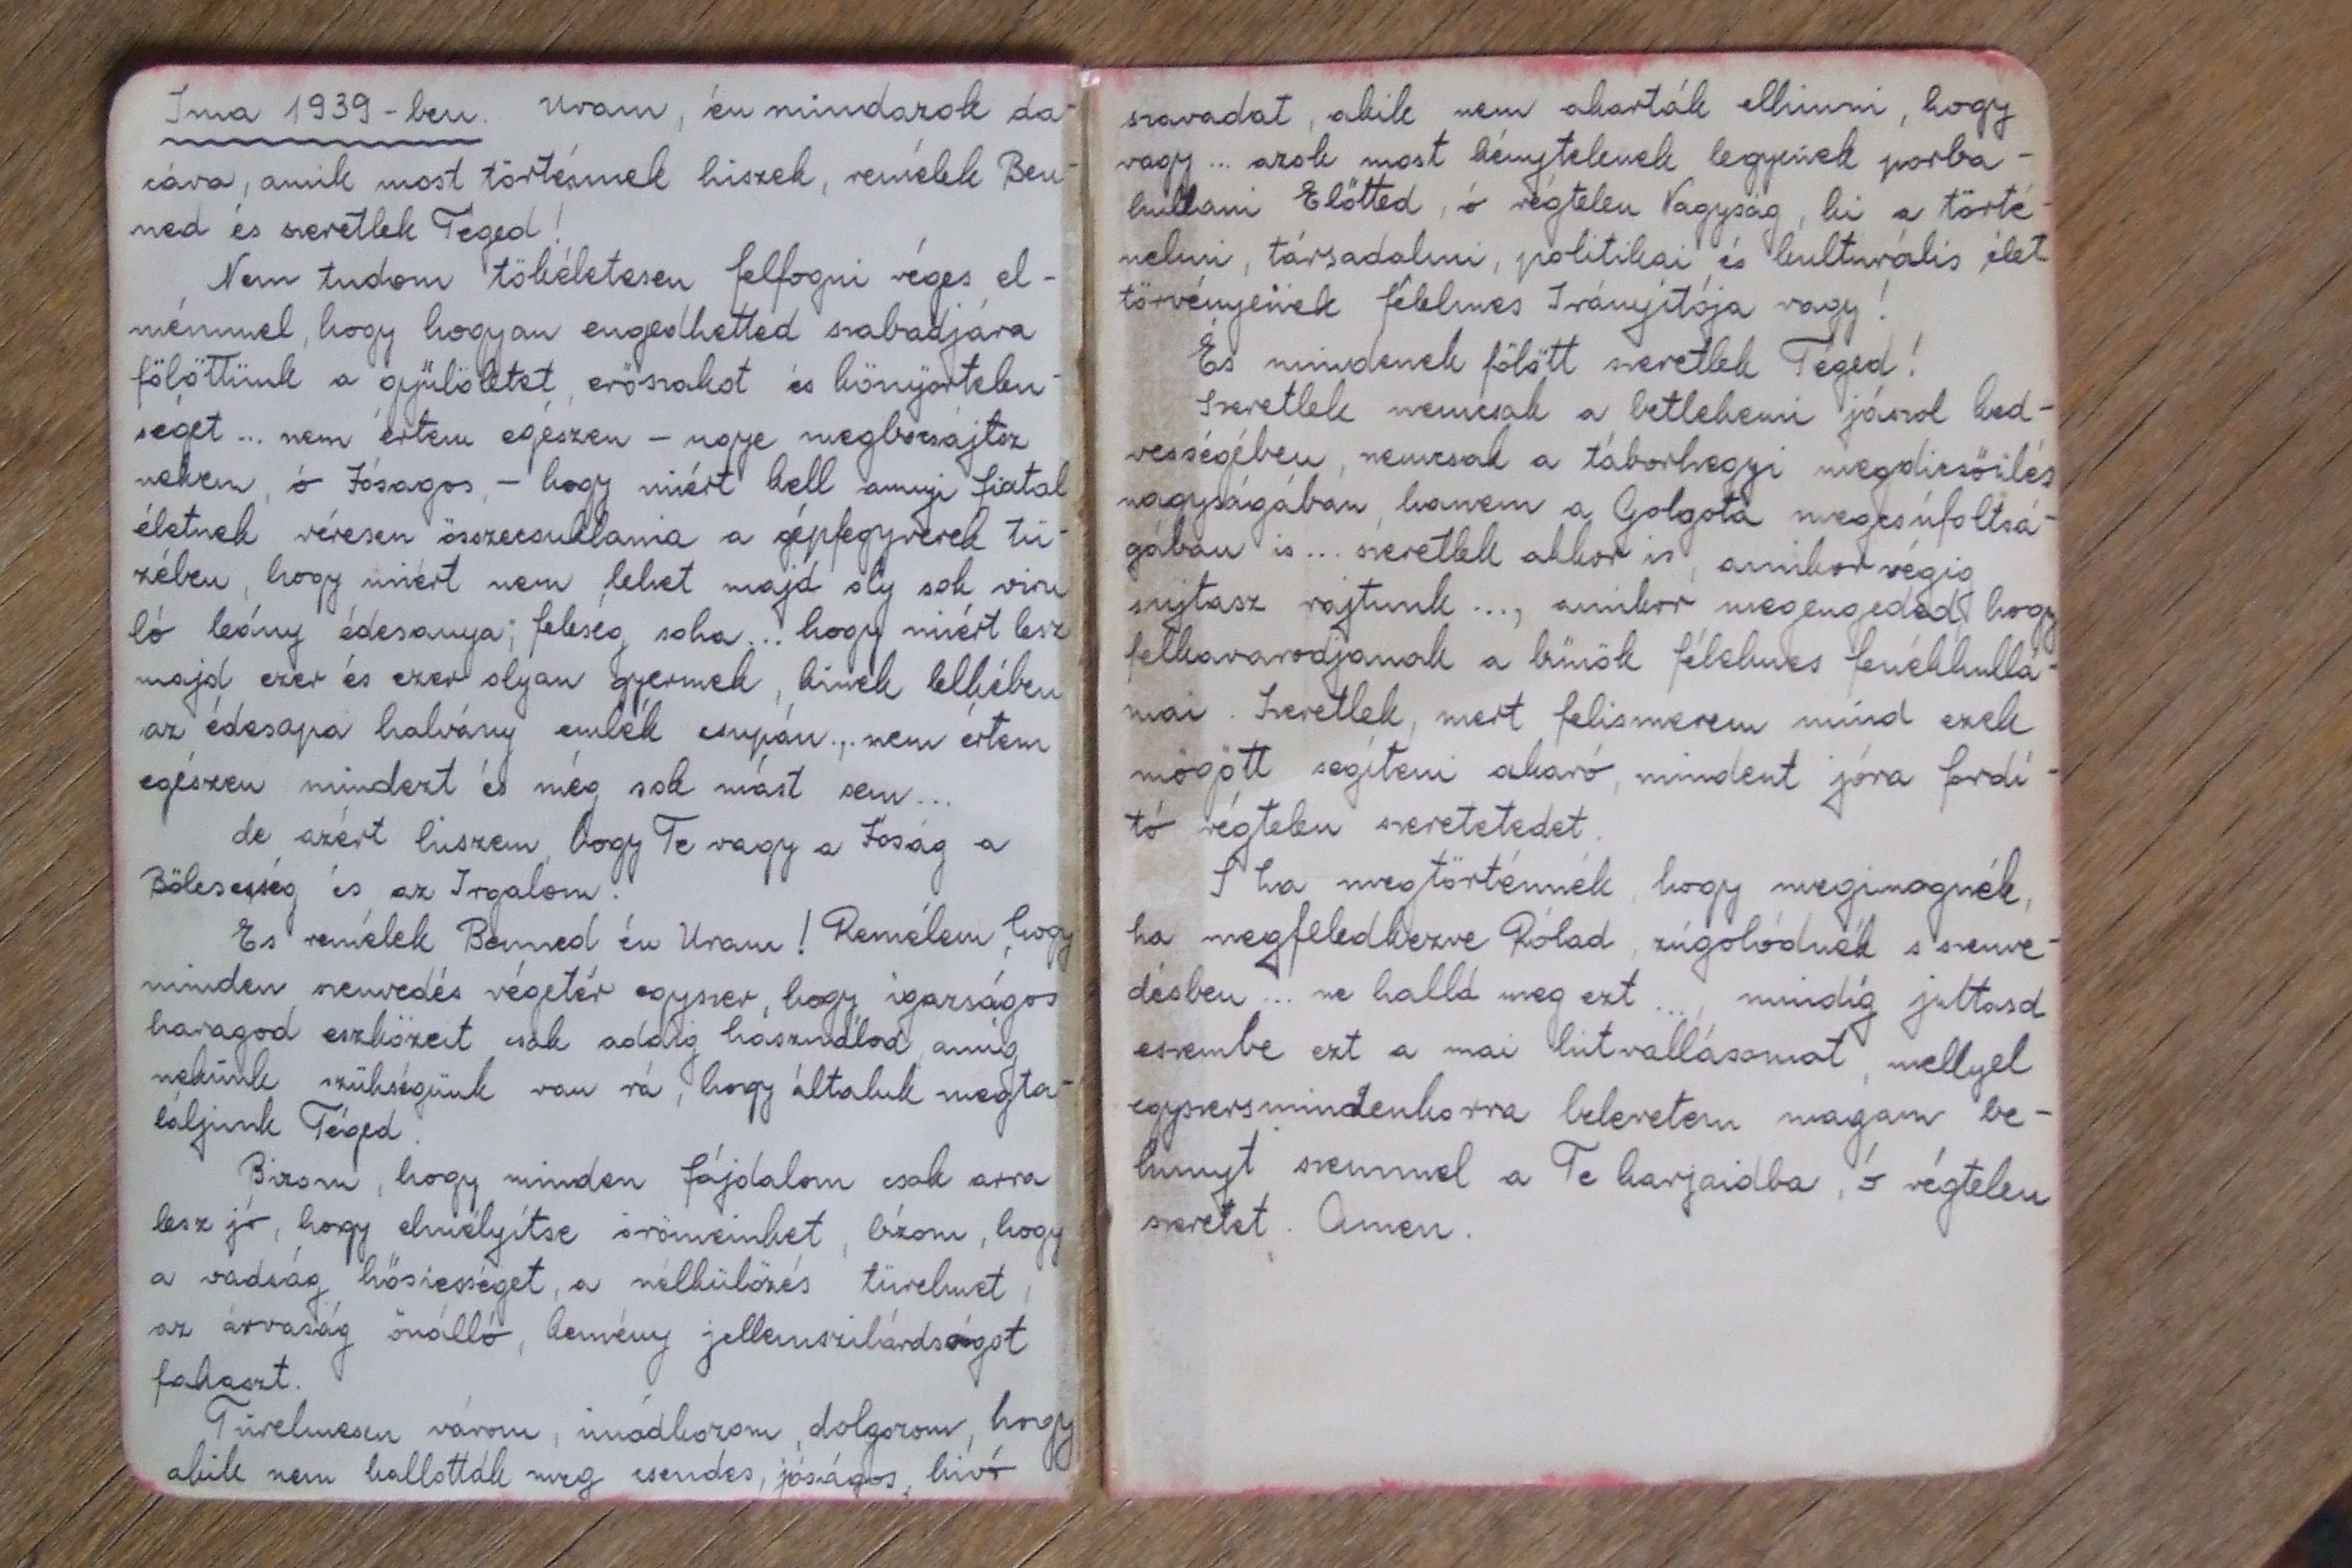 Ima 1939-ben. Uram, én mindazok da-
cára, amik most történnek hiszek, remélek Ben-
ned és szeretlek Téged!
Nem tudom tökéletesen felfogni véges el-
mémmel, hogy hogyan engedhetted szabadjára
fölöttünk a gyülöletet, erőszakot és könyörtelen-
séget... nem értem egészen – ugye megbocsájtsz
nekem, ó Jóságos, – hogy miért kell annyi fiatal
életnek véresen összecsuklania a gépfegyverek tü-
zében, hogy miért nem lehet majd oly sok viru
ló leány édesanya; feleség soha... hogy miért lesz
majd ezer és ezer olyan gyermek, kinek lelkében
az édesapa halvány emlék csupán... nem értem
egészen mindezt és még sok mást sem...
de azért hiszem, hogy Te vagy a Jóság a
Bölcsesség és az Irgalom!
És remélek Benned én Uram! Remélem, hogy
minden szenvedés végetér egyszer, hogy igazságos
haragod eszközeit csak addig használod, amíg
nekünk szükségünk van rá, hogy általuk megta-
láljunk Téged.
Bizom, hogy minden fájdalom csak arra
lesz jó, hogy elmélyítse örömeinket, bízom, hogy
a vadság hősiességet, a nélkülözés türelmet,
az árvaság önálló, kemény jellemszilárdságot
fakaszt.
Türelmesen várom, imádkozom, dolgozom, hogy
akik nem hallották meg csendes, jóságos, hívó
szavadat, akik nem akarták elhinni, hogy
vagy... azok most kénytelenek legyenek porba-
hullani Előtted, ó végtelen Nagyság, ki a törté-
nelmi, társadalmi, politikai és kulturális élet
törvényeinek félelmes Irányítója vagy!
És mindenek fölött szeretlek Téged!
Szeretlek nemcsak a betlehemi jászol ked-
vességében, nemcsak a táborhegyi megdicsőülés
nagyságában, hanem a Golgota megcsúfoltsá-
gában is... szeretlek akkor is, amikor végig
sujtasz rajtunk..., amikor megengeded, hogy
felkavarodjanak a bűnök félelmes fenékhullá-
mai. Szeretlek, mert felismerem mind ezek
mögött segíteni akaró, mindent jóra fordí-
tó végtelen szeretetedet.
S ha megtörténnék, hogy meginognék,
ha megfeledkezve Rólad, zúgolódnék s szenve-
désben... ne halld meg ezt..., mindíg juttasd
eszembe ezt a mai hitvallásomat, mellyel
egyszersmindenkorra belevetem magam be-
hunyt szemmel a Te karjaidba, ó végtelen
szeretet. Amen.